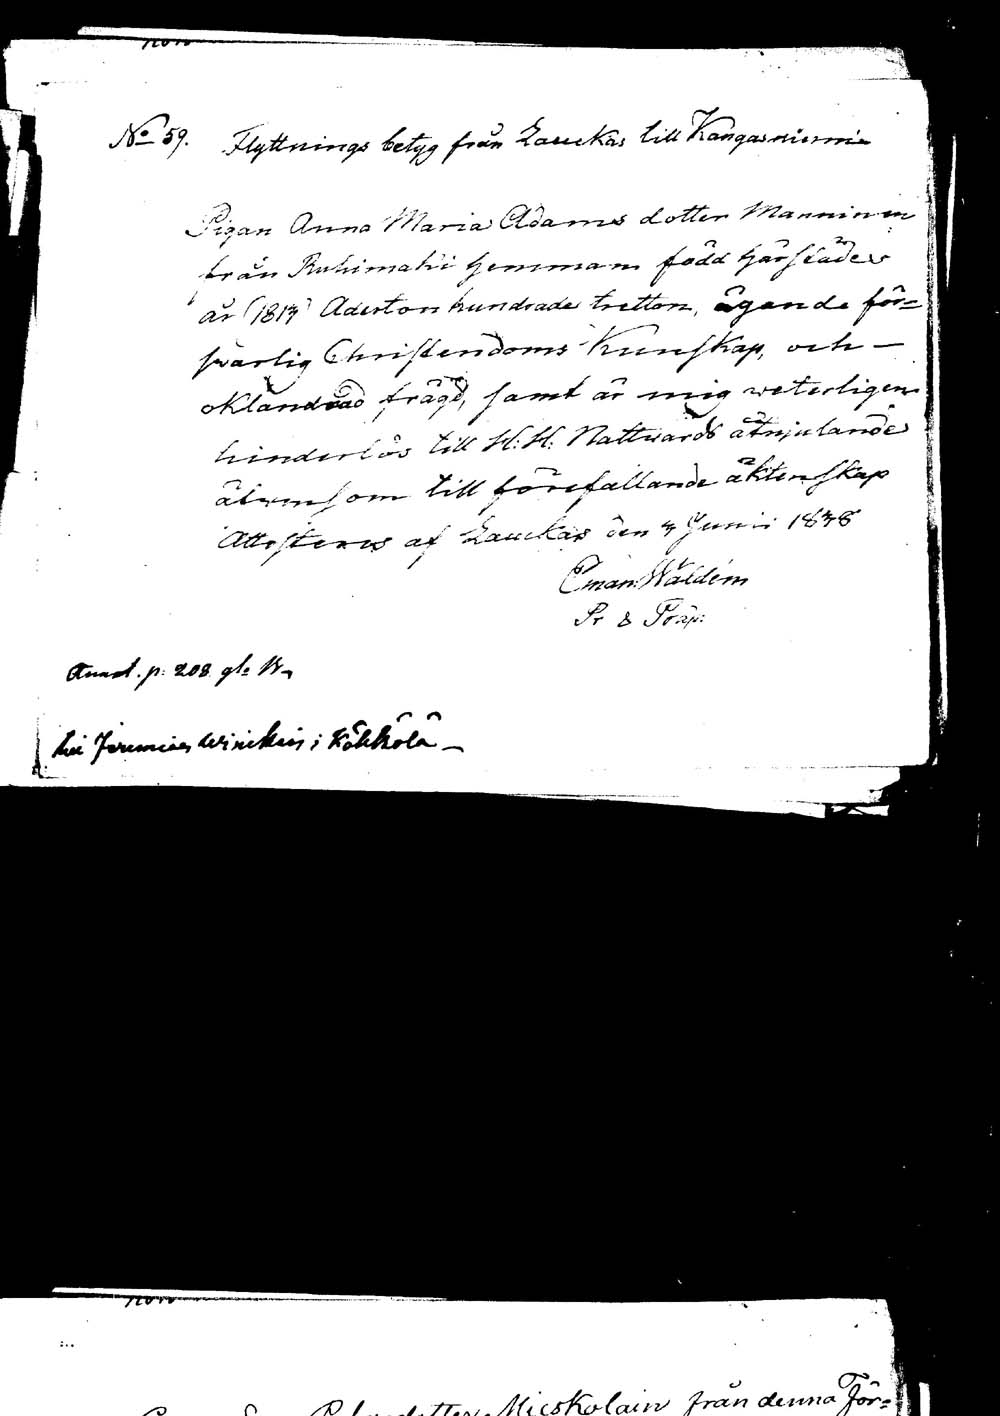 No 59. Flyttnings betyg från Lauckas till Kangasniemie
Pigan Anna Maria Adams dotter Manninen
från Ruhimäki Hemmam född härstädes
år (1813) Aderton hundrade tretton, ägande för=
svarlig Christendoms Kunskap, och —
oklandrad frägd, samt är mig weterligen
hinderlös till H: H: Nattwards åtnjutande
äfwensom till förefallande äktenskap
Attesteras af Lauckas den 3 Junii 1838
Eman: Waldén
Pr & Pråp:
Annot. p. 208
hos Jeremias i Kökkölä —
från denna För=